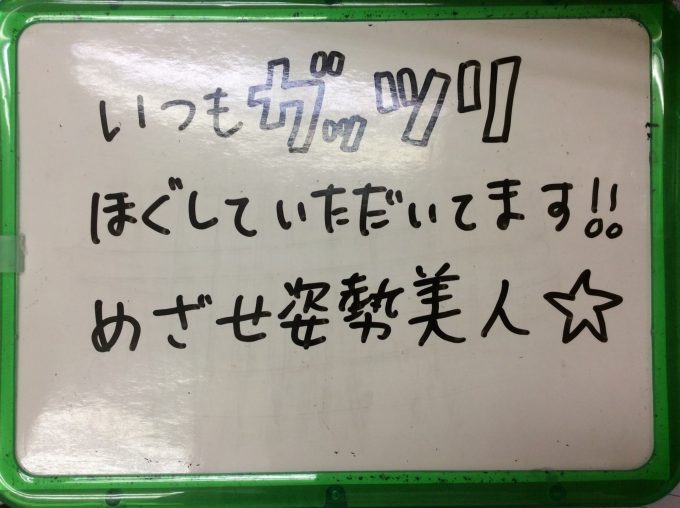 いつもガッツリ
ほぐしていただいてます!!
めざせ姿勢美人☆